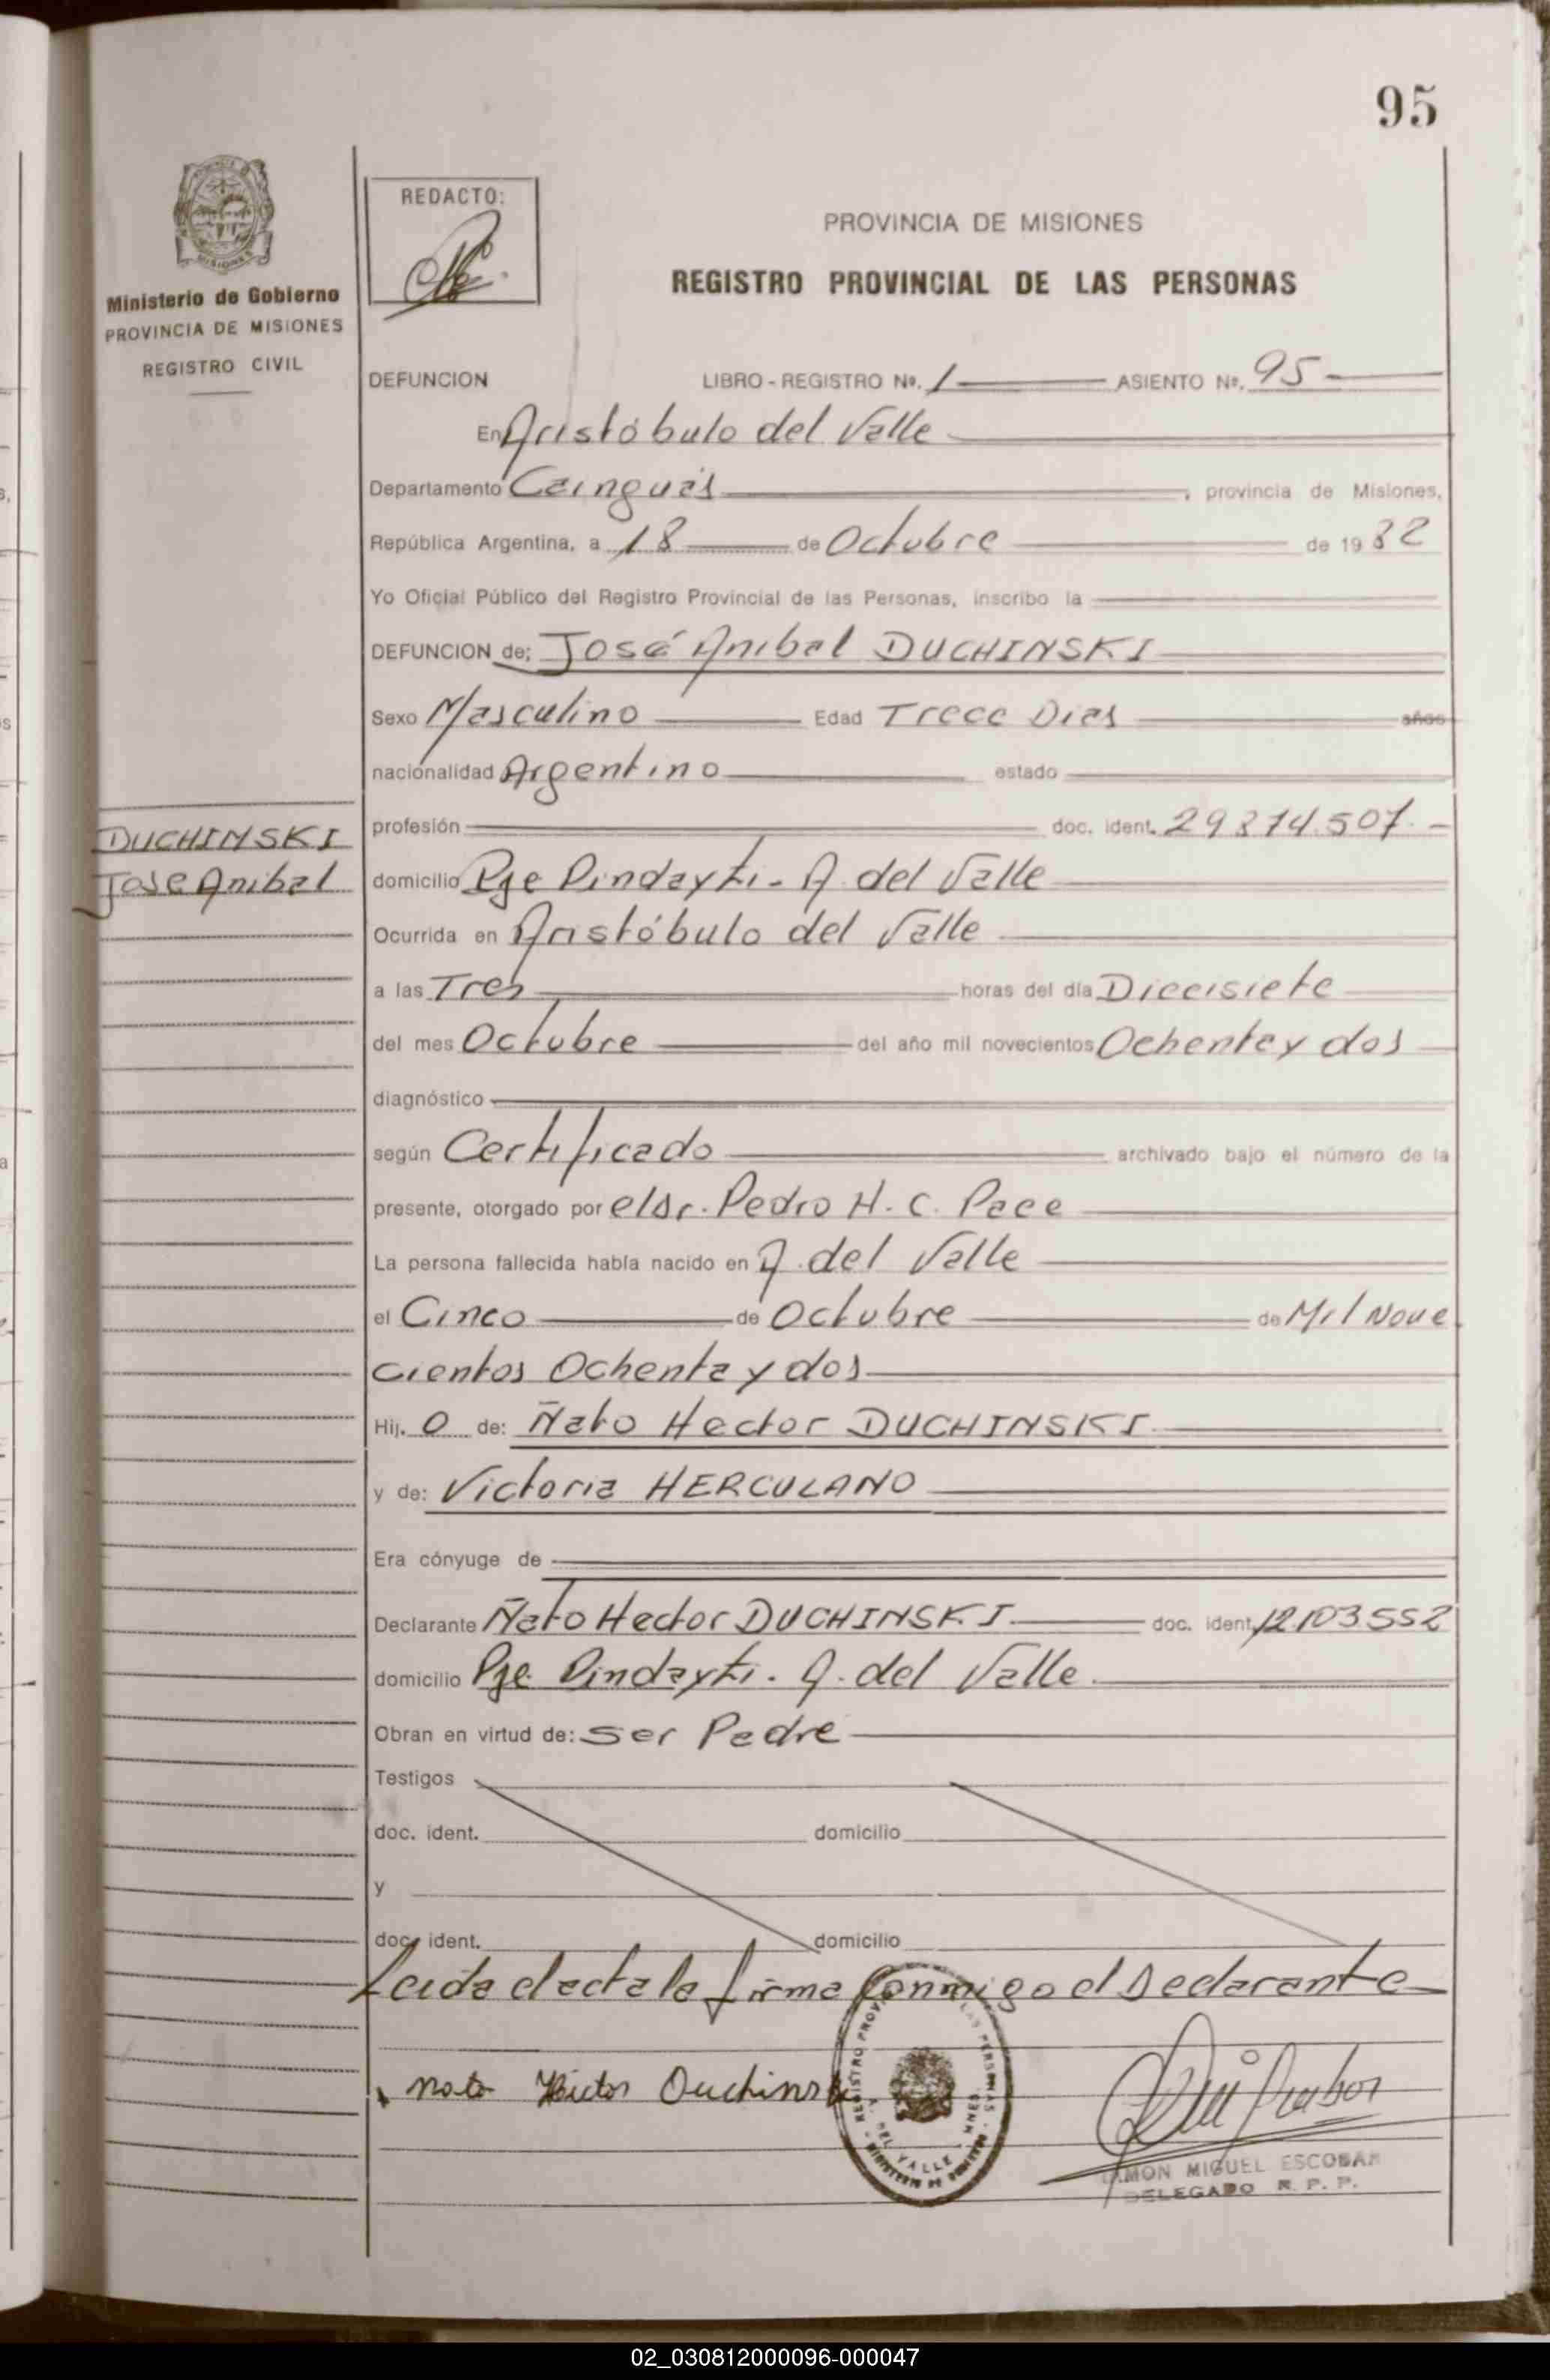 95
REDACTO:
Ministerio de Gobierno
PROVINCIA DE MISIONES
REGISTRO CIVIL
PROVINCIA DE MISIONES
REGISTRO PROVINCIAL DE LAS PERSONAS
DEFUNCION LIBRO - REGISTRO Nº. 1 ASIENTO Nº. 95
En Aristóbulo del Valle
Departamento Cainguás, provincia de Misiones,
República Argentina, a 18 de Octubre de 1982
Yo Oficial Público del Registro Provincial de las Personas, inscribo la
DEFUNCION de; José Anibal DUCHINSKI
Sexo Masculino Edad Trece Dias años
nacionalidad Argentino estado
DUCHINSKI
Jose Anibal
profesión doc. ident. 29.874.507.-
domicilio Pje Pindayti - A. del Valle
Ocurrida en Aristóbulo del Valle
a las Tres horas del día Diecisiete
del mes Octubre del año mil novecientos Ochenta y dos
diagnóstico
según Certificado archivado bajo el número de la
presente, otorgado por el dr. Pedro H. C. Pace
La persona fallecida había nacido en A. del Valle
el Cinco de Octubre de Mil Nove
cientos Ochenta y dos
Hij. o de: Ñato Hector DUCHINSKI
y de: Victoria HERCULANO
Era cónyuge de
Declarante Ñato Hector DUCHINSKI doc. ident. 12.103.552
domicilio Pje. Pindayti. A. del Valle
Obran en virtud de: ser Padre
Testigos
doc. ident. domicilio
y
doc. ident. domicilio
Leida el acta la firma Conmigo el Declarante
nato Hector Duchinski
REGISTRO PROVINCIAL DE LAS PERSONAS
A. DEL VALLE - MNES.
MINISTERIO DE GOBIERNO
RAMON MIGUEL ESCOBAR
DELEGADO R. P. P.
02_030812000096-000047